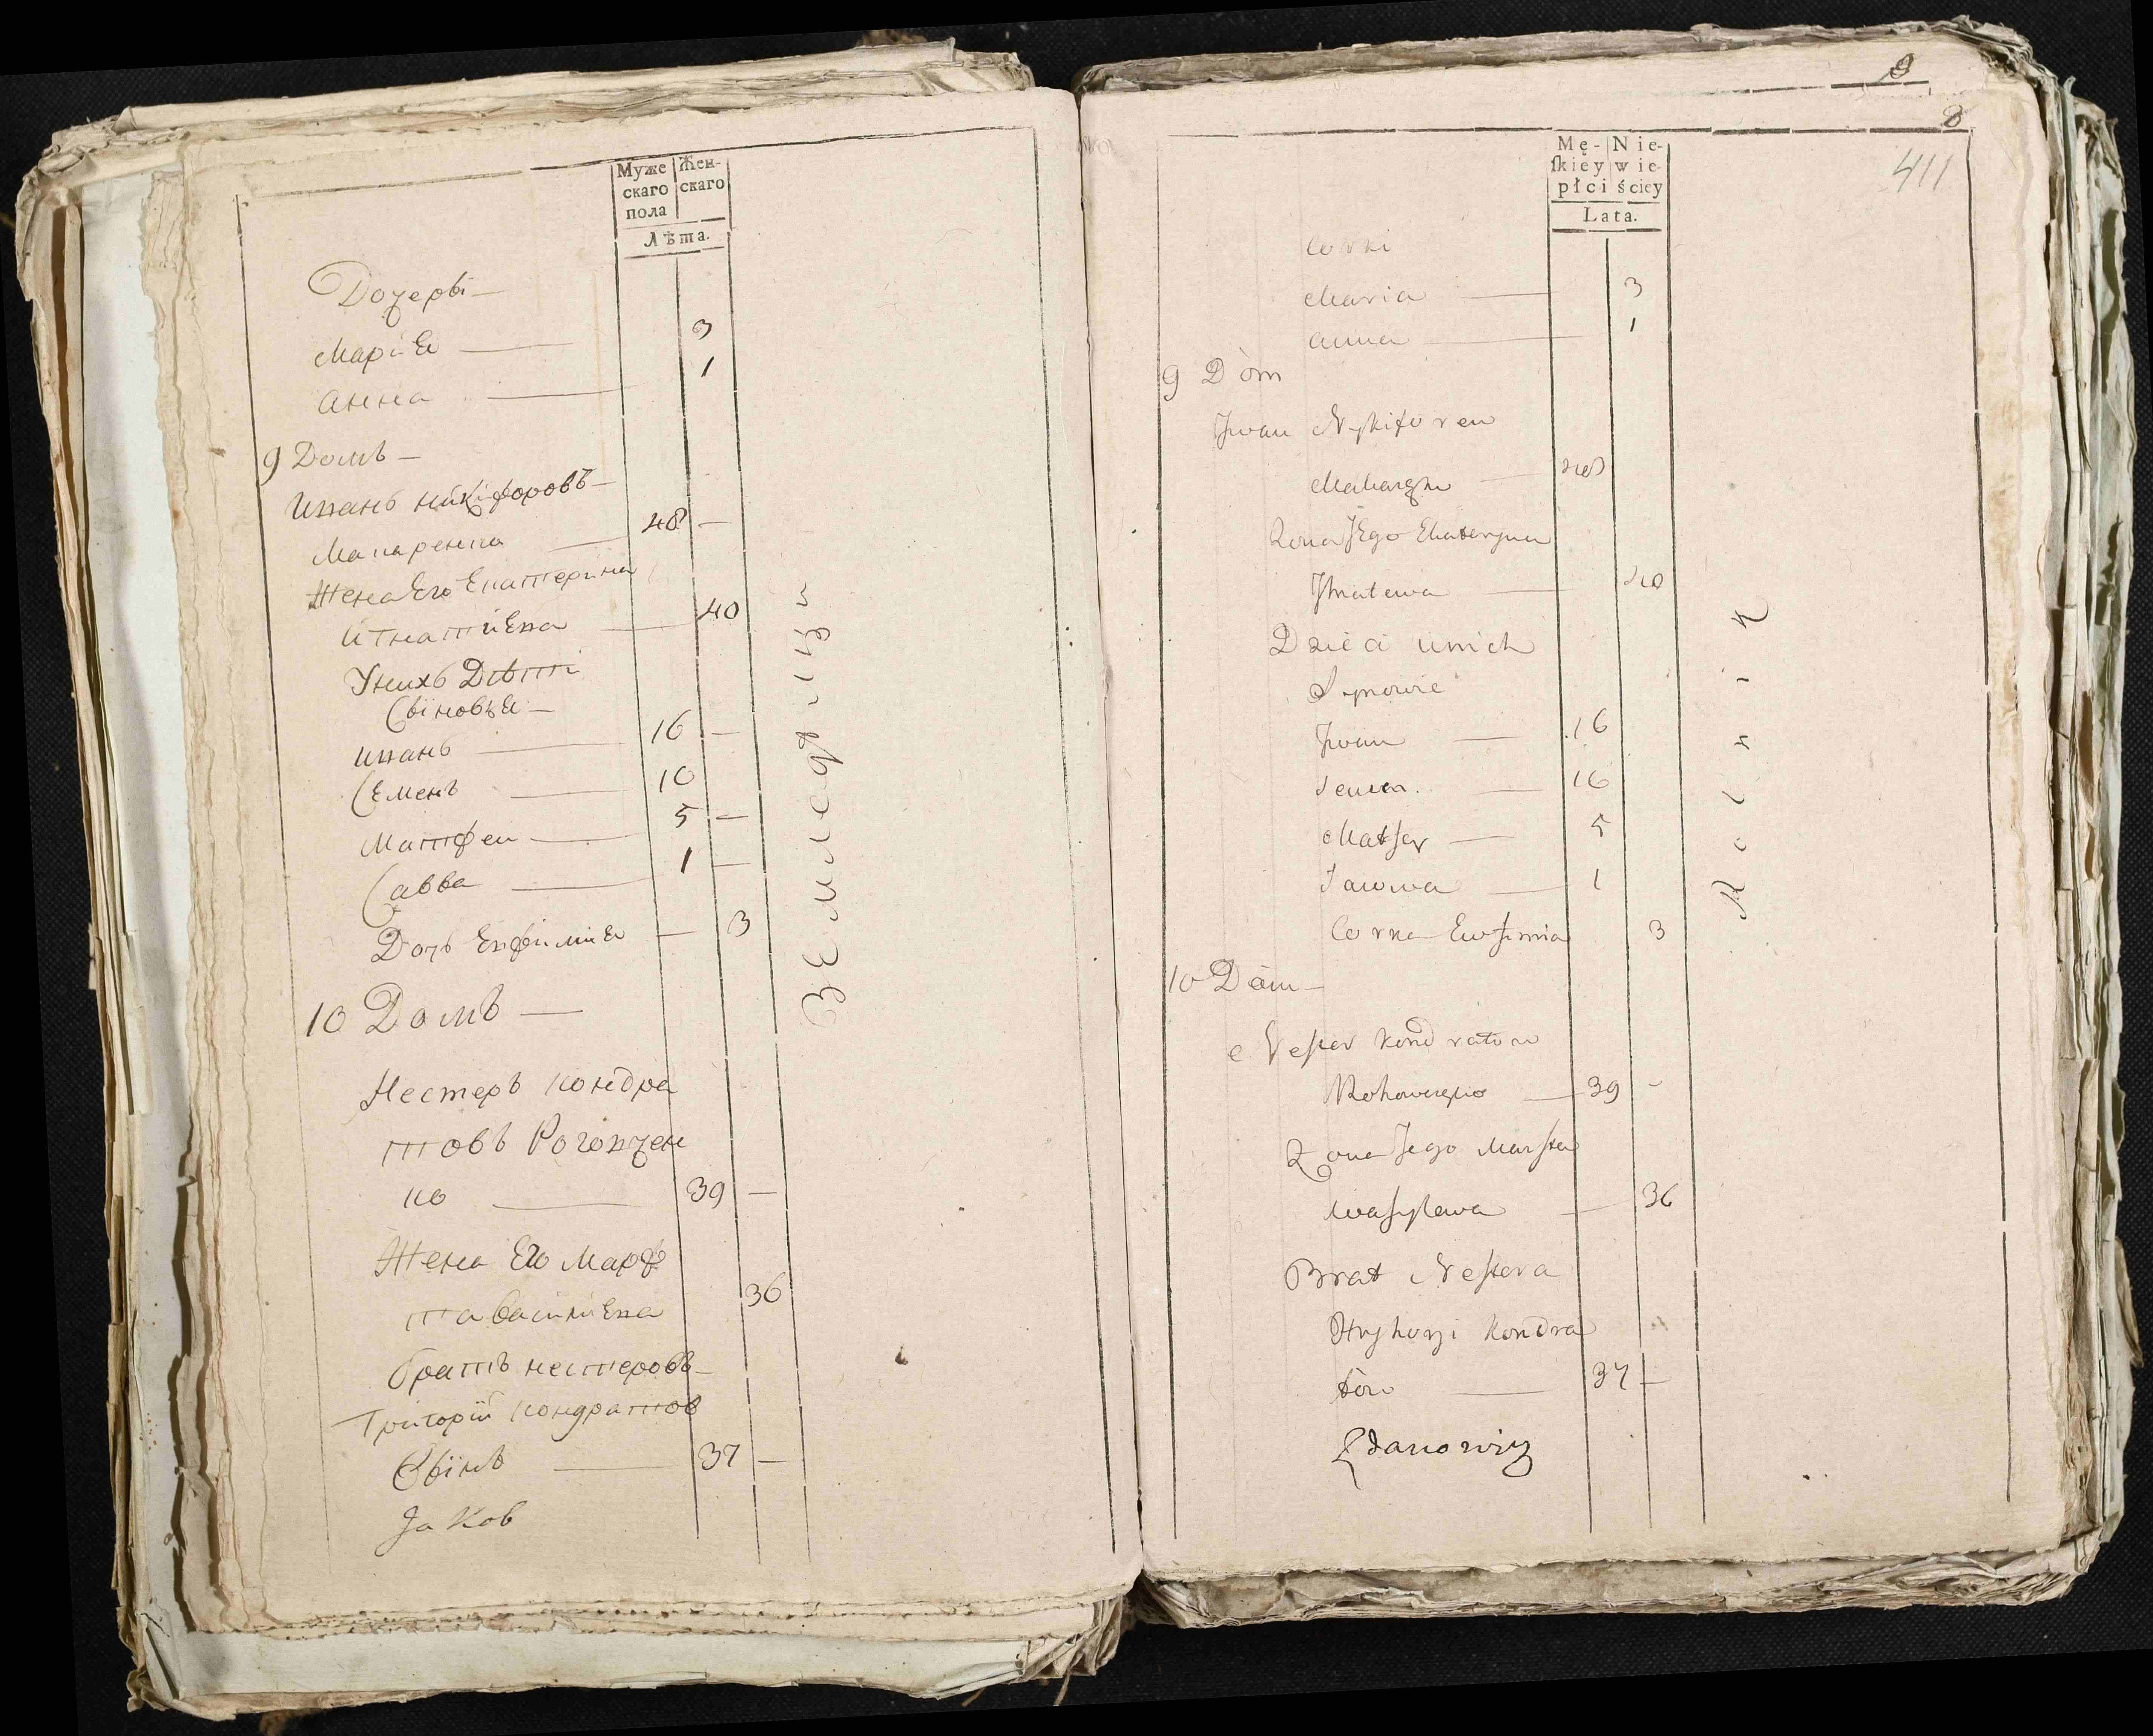 Муже Жен-
скаго скаго
пола
Лѣта.
Дочери—
Маріа 3
Анна 1
9 Домъ—
Иванъ Никифоровъ—
Макаренко 48 —
Жена Его Екатерина
Игнатиева 40
Унихъ Дѣти
Сыновья—
Иванъ 16 —
Семенъ 10
Матфеи 5 —
Савва 1 —
Дочь Евфимиа 3
10 Домъ—
Нестеръ Кондра
товъ Роговчен
ко 39 —
Жена Его Марф
та Василиева 36
Братъ Нестеровъ—
Григорій Кондратов
Сынъ 37 —
Jаков
Земледелци
8
8
411
Mę- Nie-
skiey wie-
płci ściey
Lata.
Corki
Maria 3
Anna 1
9 Dòm
Jwan Nykiforow
Makarenko 48
Zona Jego Ekateryna
Jhnatewa 40
Dzieci unich
Synowie
Jwan 16
Semen. 10
Matfey 5
Sawwa 1
Corka Ewfimia 3
10 Dòm—
Nester Kondratow
Rohowczenko 39 -
Zona Jego Marfta
Wasylewa 36
Brat Nestera
Hryhoryi Kondra
tow 37 —
Zdanowicz
Rolnik